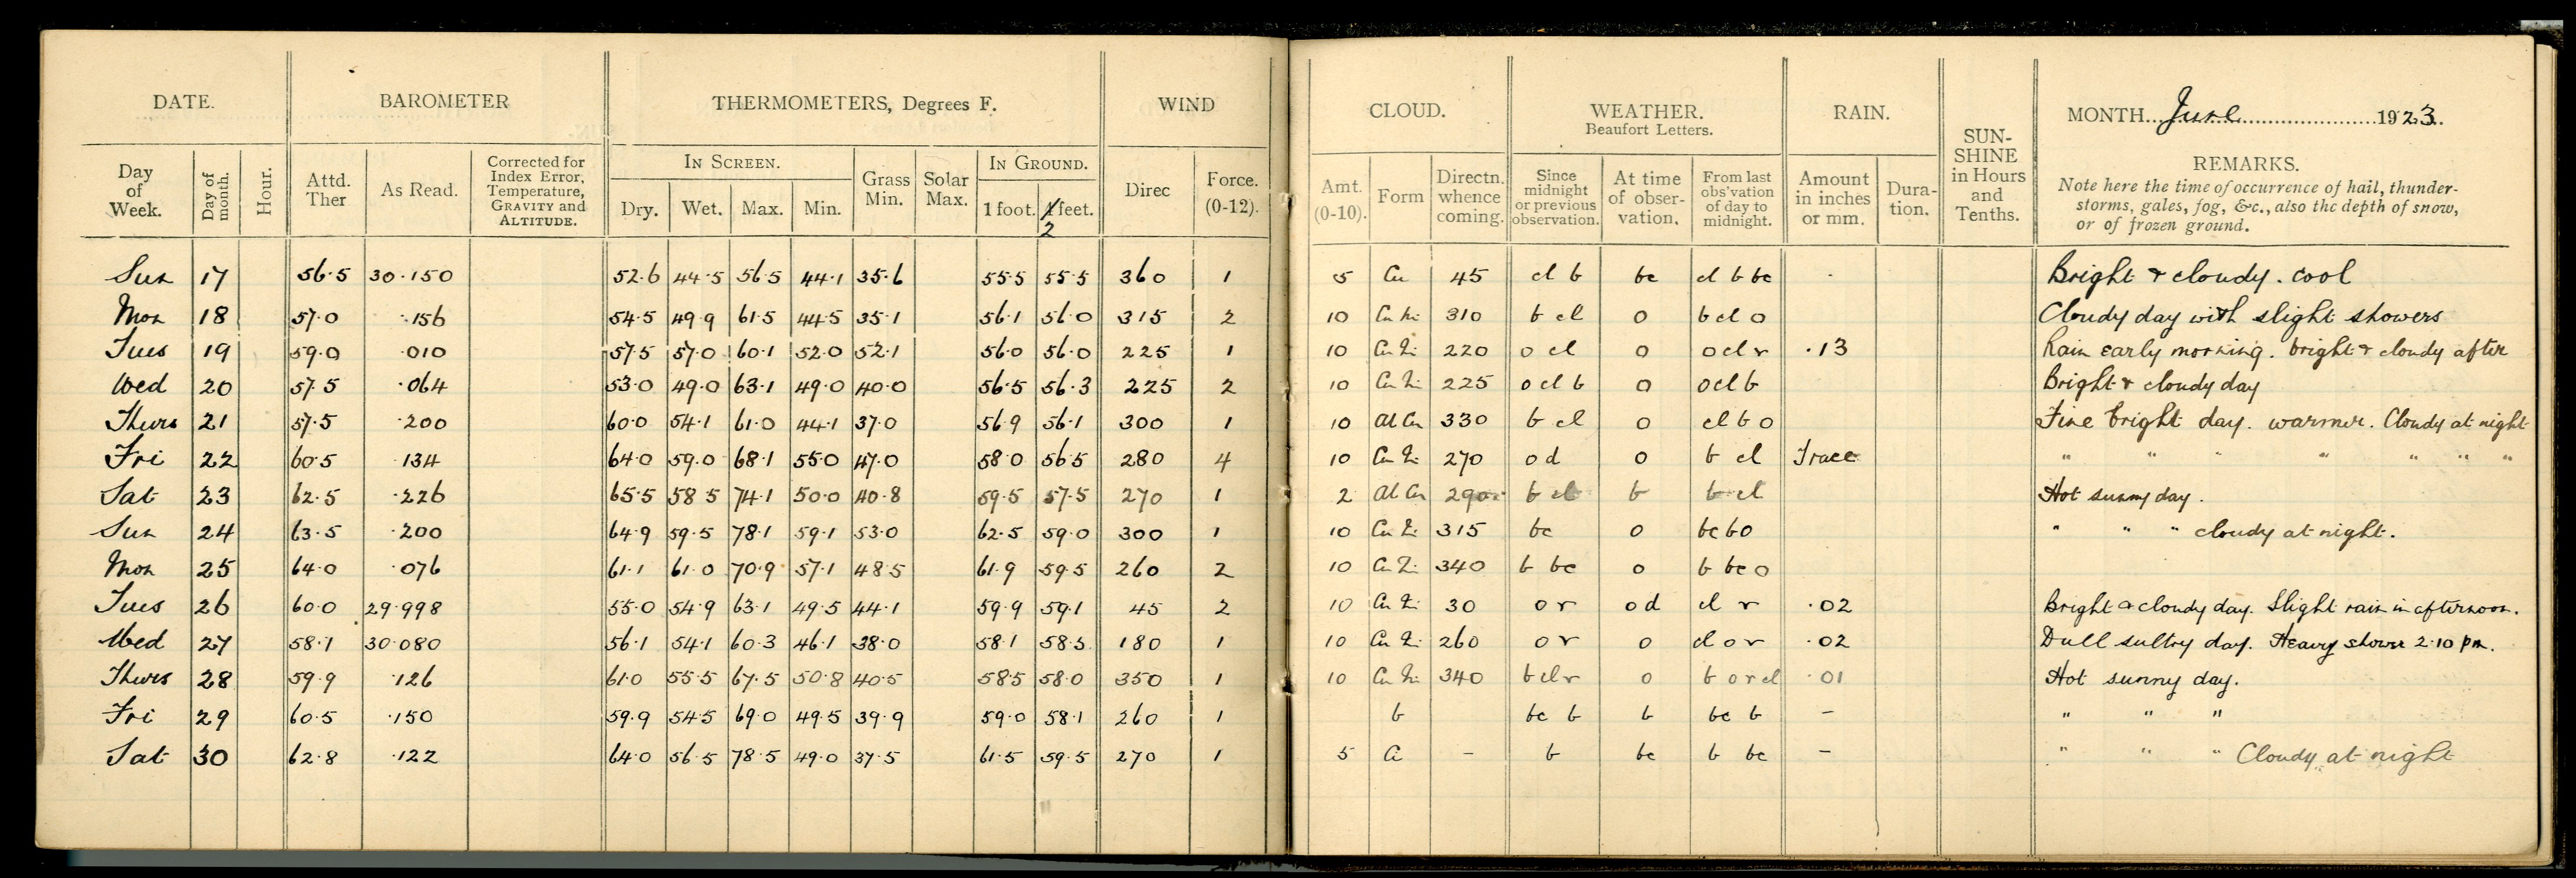 DATE. BAROMETER THERMOMETERS, Degrees F. WIND
Day of Week. Day of month. Hour. Attd. Ther As Read. Corrected for Index Error, Temperature, GRAVITY and ALTITUDE. IN SCREEN. Dry. Wet. Max. Min. Grass Min. Solar Max. IN GROUND. 1 foot. 4 feet. 2 Direc Force. (0-12).
Sun 17 56.5 30.150 52.6 44.5 56.5 44.1 35.6 55.5 55.5 360 1
Mon 18 57.0 .156 54.5 49.9 61.5 44.5 35.1 56.1 56.0 315 2
Tues 19 59.0 .010 57.5 57.0 60.1 52.0 52.1 56.0 56.0 225 1
Wed 20 57.5 .064 53.0 49.0 63.1 49.0 40.0 56.5 56.3 225 2
Thurs 21 57.5 .200 60.0 54.1 61.0 44.1 37.0 56.9 56.1 300 1
Fri 22 60.5 .134 64.0 59.0 68.1 55.0 47.0 58.0 56.5 280 4
Sat 23 62.5 .226 65.5 58.5 74.1 50.0 40.8 59.5 57.5 270 1
Sun 24 63.5 .200 64.9 59.5 78.1 59.1 53.0 62.5 59.0 300 1
Mon 25 64.0 .076 61.1 61.0 70.9 57.1 48.5 61.9 59.5 260 2
Tues 26 60.0 29.998 55.0 54.9 63.1 49.5 44.1 59.9 59.1 45 2
Wed 27 58.1 30.080 56.1 54.1 60.3 46.1 38.0 58.1 58.5 180 1
Thurs 28 59.9 .126 61.0 55.5 67.5 50.8 40.5 58.5 58.0 350 1
Fri 29 60.5 .150 59.9 54.5 69.0 49.5 39.9 59.0 58.1 260 1
Sat 30 62.8 .122 64.0 56.5 78.5 49.0 37.5 61.5 59.5 270 1
CLOUD. WEATHER. Beaufort Letters. RAIN. SUN-SHINE in Hours and Tenths. MONTH June 1923
Amt. (0-10). Form Directn. whence coming. Since midnight or previous observation. At time of obser-vation. From last obs'vation of day to midnight. Amount in inches or mm. Dura-tion. REMARKS.
Note here the time of occurrence of hail, thunder-
storms, gales, fog, &c., also the depth of snow,
or of frozen ground.
5 Cu 45 cl b bc cl b bc . Bright & cloudy. cool
10 Cu Ni 310 b cl o b cl o Cloudy day with slight showers
10 Cu Ni 220 o cl o o cl r .13 Rain early morning. bright & cloudy after
10 Cu Ni 225 o cl b o o cl b Bright & cloudy day
10 Al Cu 330 b cl o cl b o Fine bright day. warmer. Cloudy at night
10 Cu Ni 270 o d o b cl Trace " " " " " " "
2 Al Cu 290 b cl b b cl Hot sunny day.
10 Cu Ni 315 bc o bc b o " " " cloudy at night.
10 Cu Ni 340 b bc o b bc o
10 Cu Ni 30 o r o d cl r .02 Bright & cloudy day. Slight rain in afternoon.
10 Cu Ni 260 o r o cl o r .02 Dull sultry day. Heavy shower 2.10 pm.
10 Cu Ni 340 b cl r o b o r cl .01 Hot sunny day.
b bc b b bc b – " " "
5 Ci – b bc b bc – " " " Cloudy at night